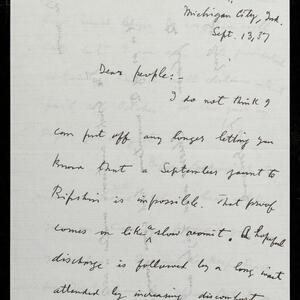 Michigan City, Ind.
Sept. 13, 37
Dear people:-
I do not think I
can put off any longer letting you
know that a September jaunt to
Ripshin is impossible. That proof
comes in like a slow vomit. A hopeful
discharge is followed by a long wait
attended by increasing discomfort